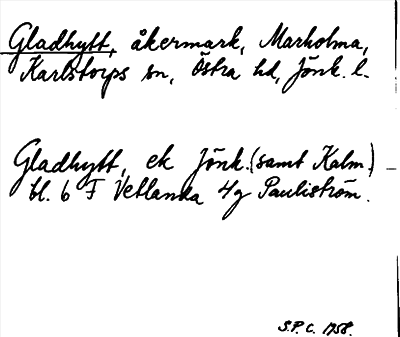 Gladhytt, åkermark, Marholma,
Karlstorps sn, Östra hd, Jönk. l.
Gladhytt, ek Jönk. (samt Kalm.)
bl. 6 F Vetlanda 4g Pauliström.
S.P.C. 1758.